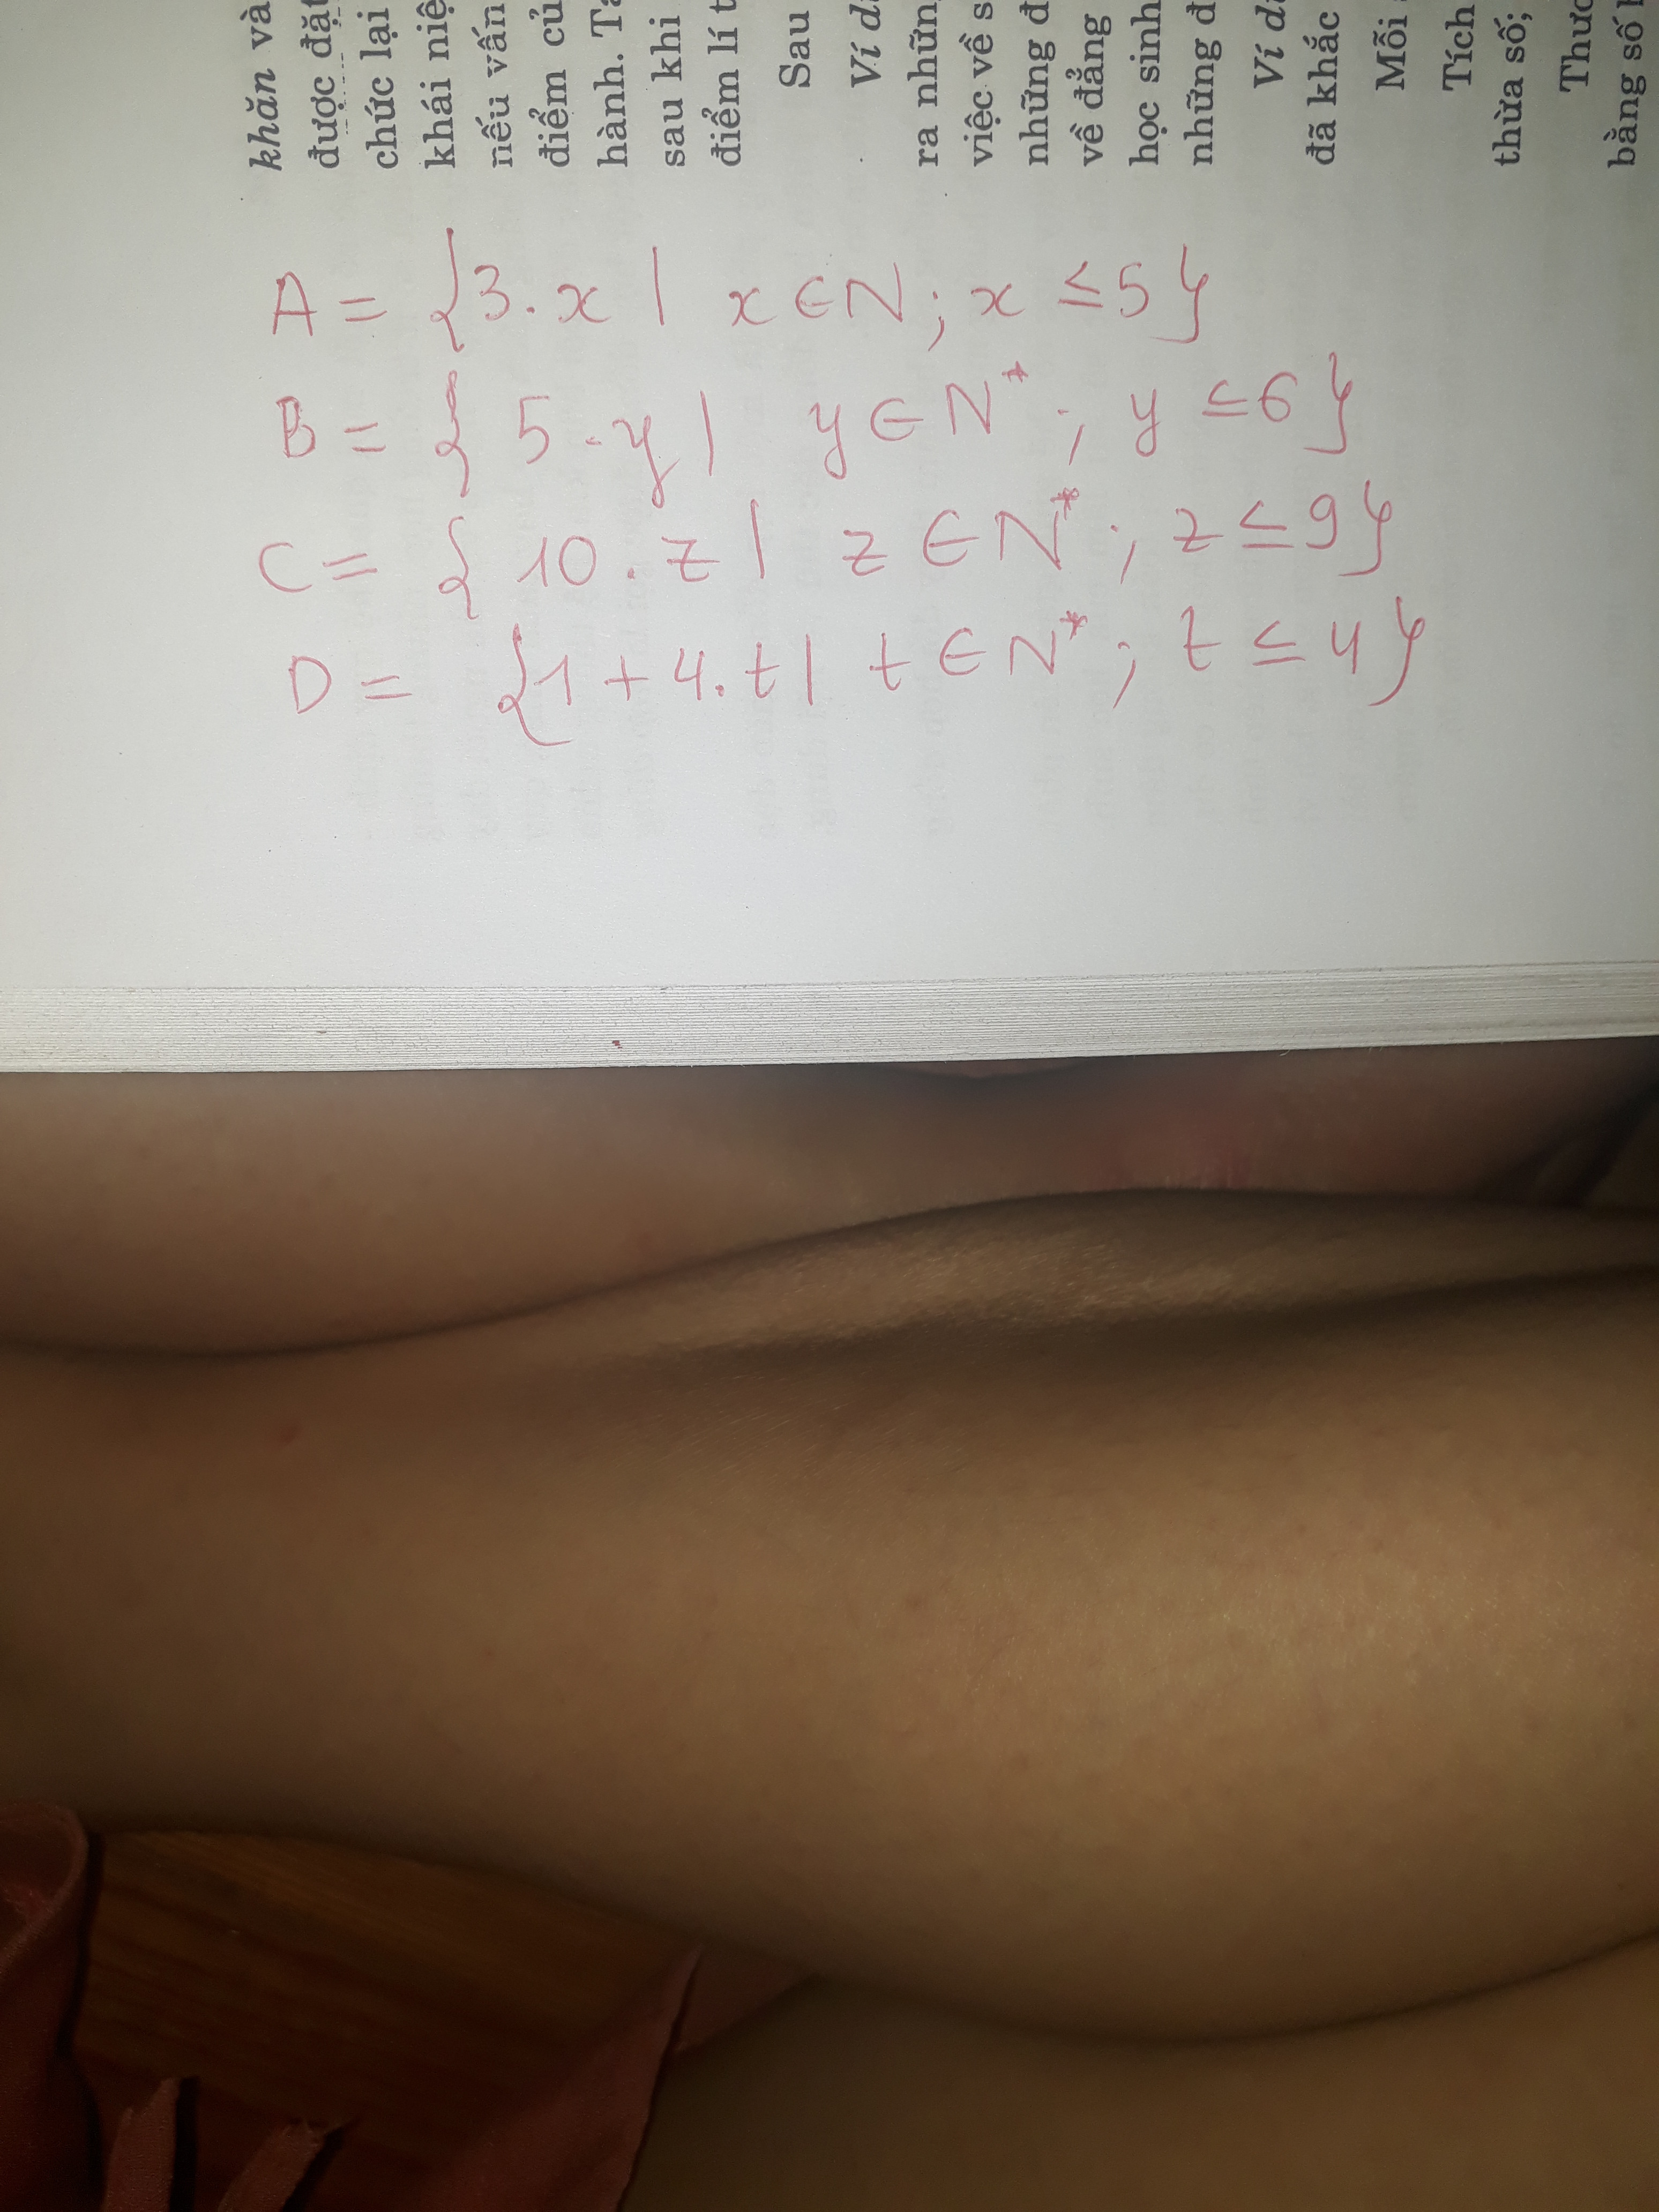 khăn và
được đặt
chức lại
khái niệ
nếu vấn
điểm củ
hành. Ta
sau khi
điểm lí t
Sau
Ví dụ
ra nhữn
việc về s
những đ
về đẳng
học sinh
những đ
Ví dụ
đã khắc
Mỗi
Tích
thừa số;
Thươ
bằng số
A = {3.x | x ∈ N; x ≤ 5}
B = {5.y | y ∈ N*; y ≤ 6}
C = {10.z | z ∈ N*; z ≤ 9}
D = {1 + 4.t | t ∈ N*; t ≤ 4}